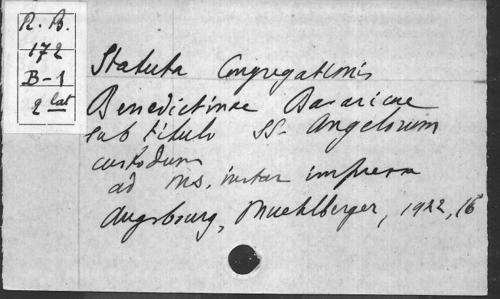 R. B.
172
B-1
2 lat
Statuta Congregationis
Benedictinae Bavaricae
sub titulo SS. Angelorum
custodum
ad ms. instar impressa
Augsbourg, Muehlberger, 1922, 16